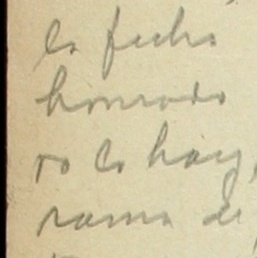 la fecha
honrado
ro lo hay,
rama de